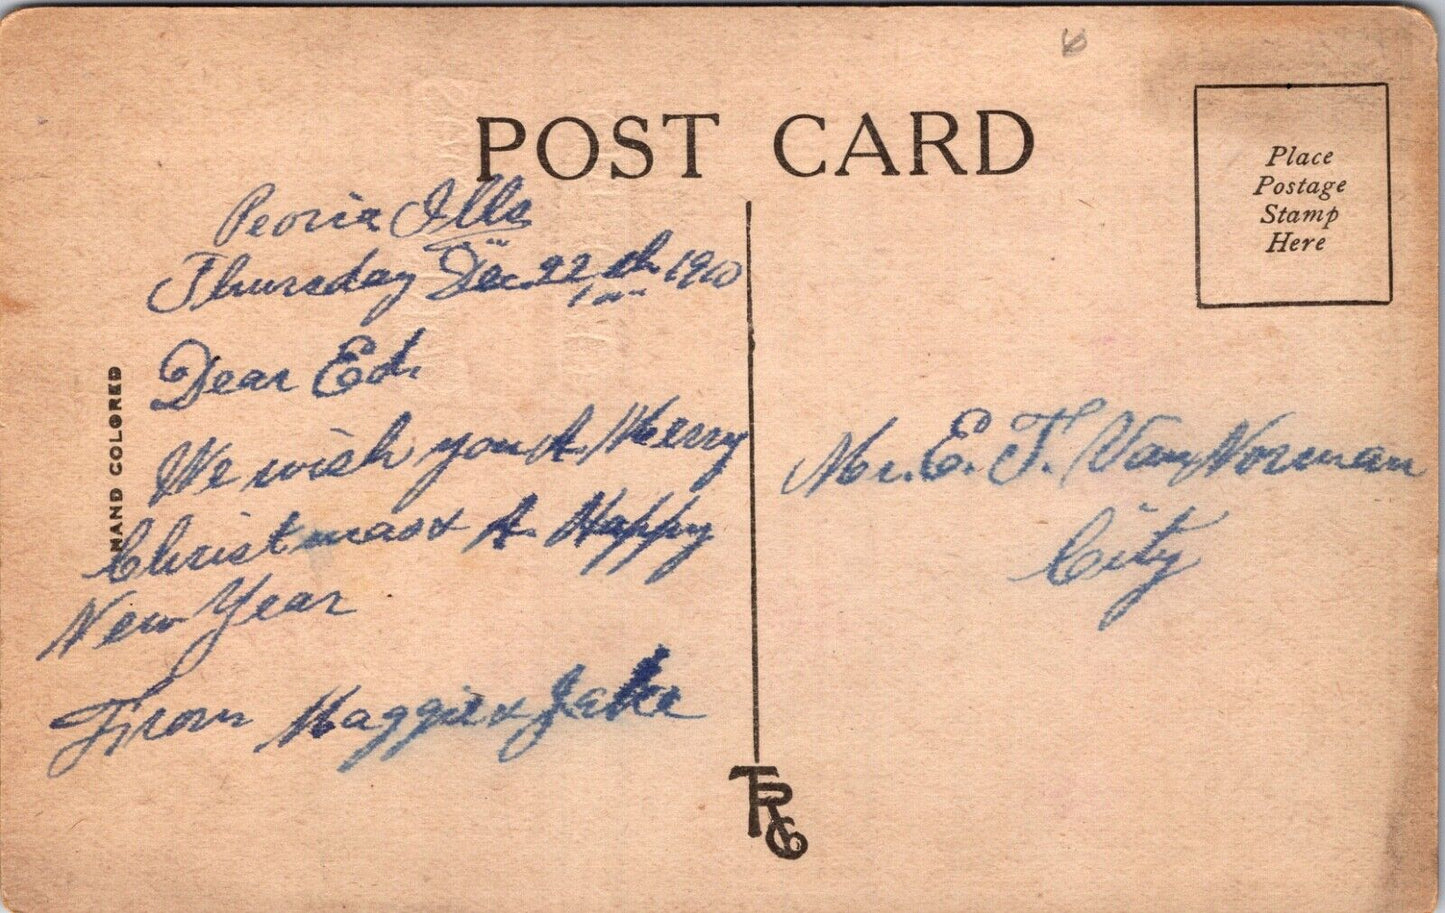 POST CARD
Place
Postage
Stamp
Here
HAND COLORED
Peoria Ills
Thursday Dec. 22th 1910
Dear Ed.
We wish you A. Merry
Christmas & A. Happy
New Year
From Maggie & Jake
Mr. E. F. Van Norman
City
TRCo